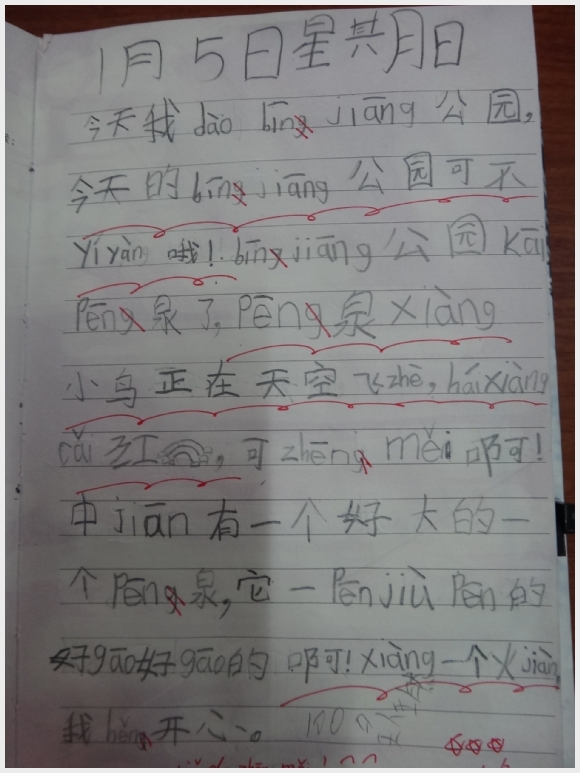 1月5日星其月日
今天我dào bīng jiāng公园,
今天的bīng jiāng公园可不
yí yàng哦!bīng jiāng公园kāi
Pēng泉了,Pēng泉xiàng
小鸟正在天空飞zhe,hái xiàng
cǎi红,可zhēng měi啊!
中jiān有一个好大的一
个Pēng泉,它一Pēn jiù Pēn的
好gāo好gāo的啊!xiàng一个火jiàn
我hěng开心。